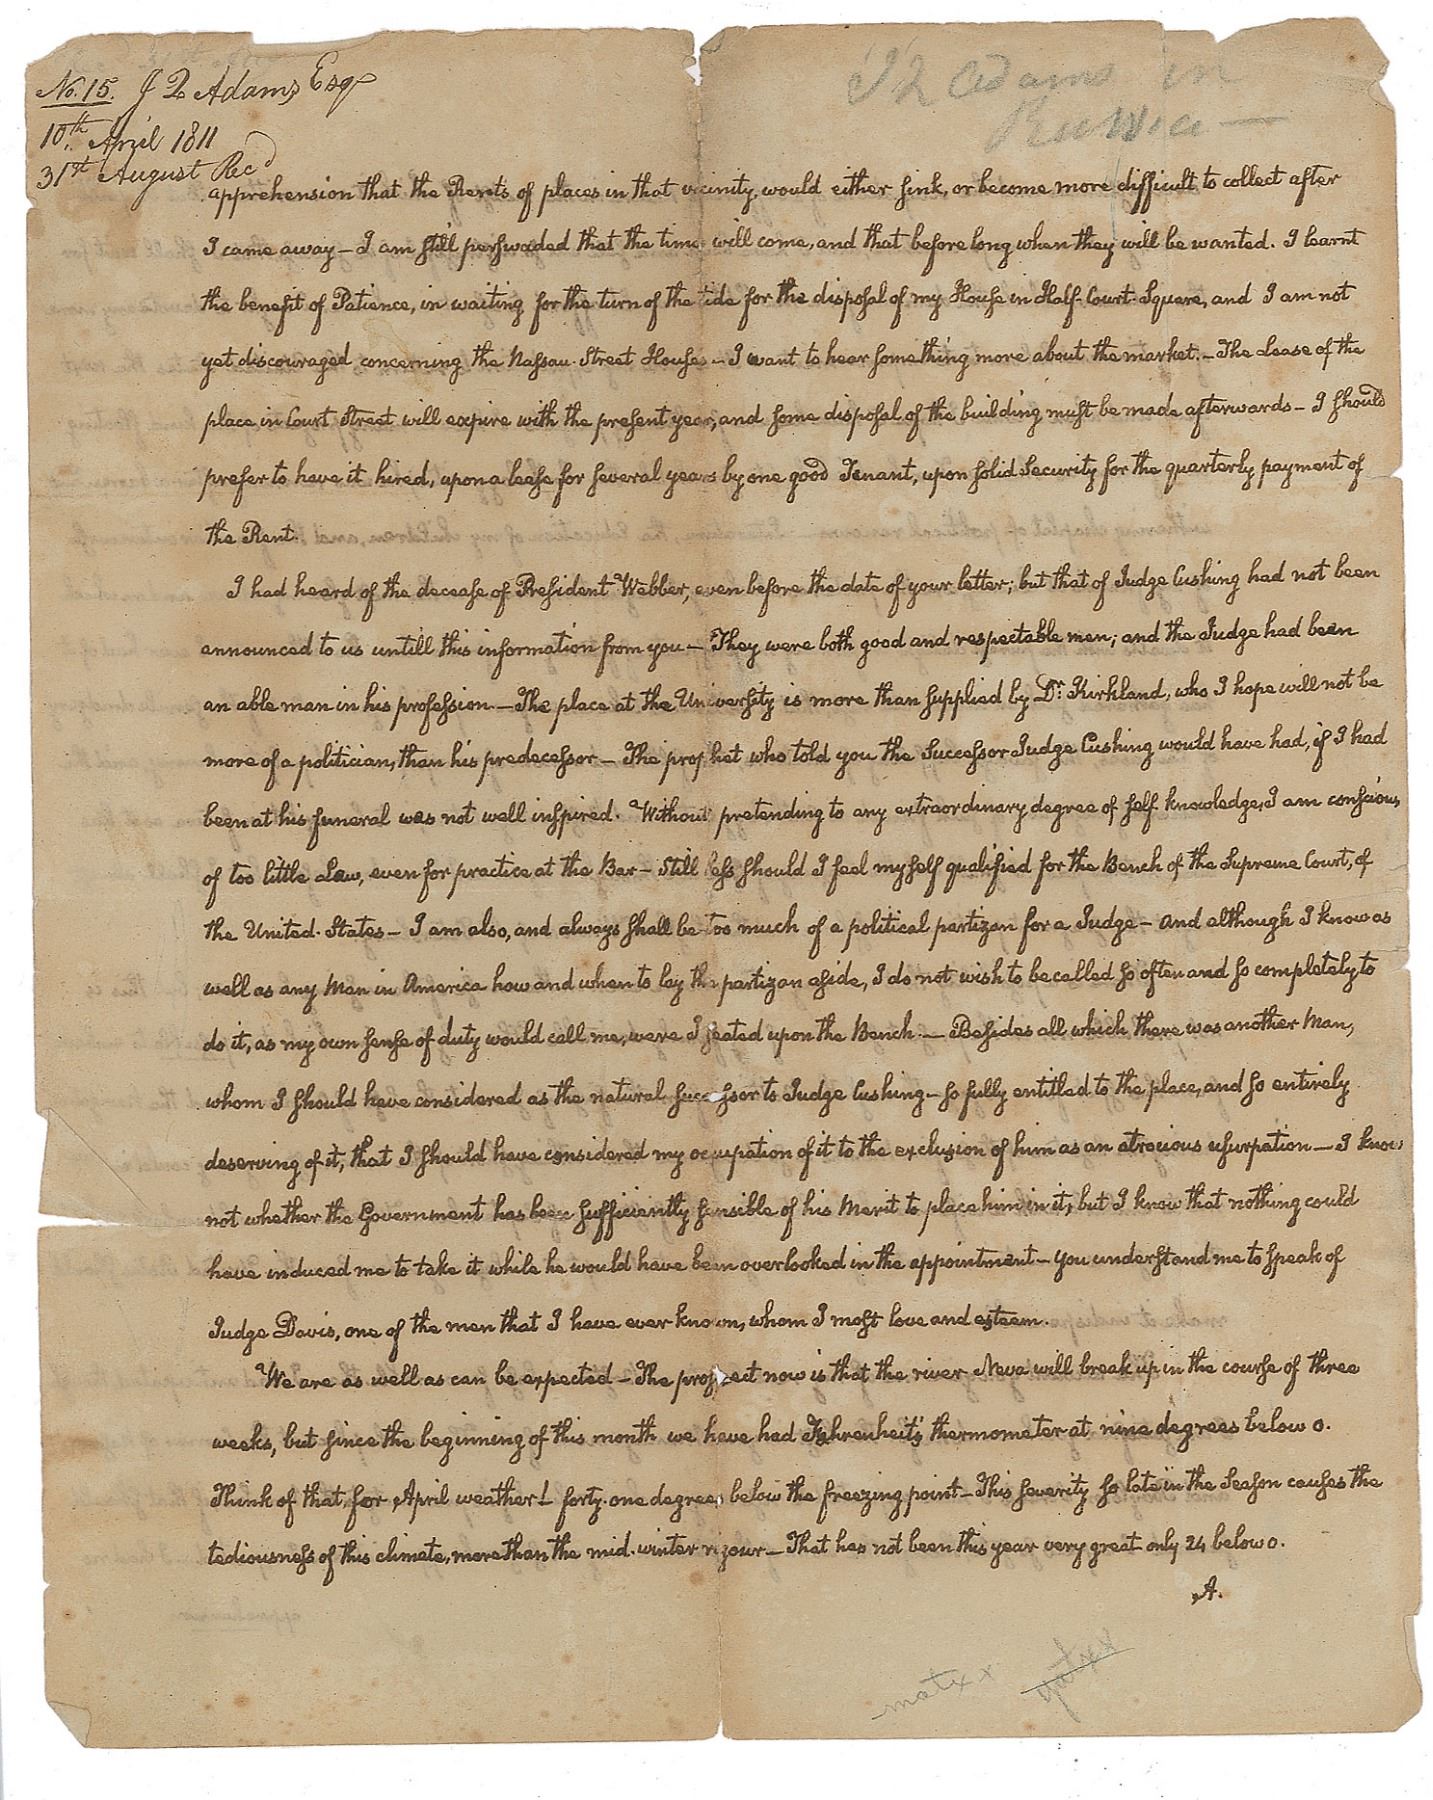 No. 15. J Q Adams Esqr
10th. April 1811
31st August Recd
J Q Adams in
Russia —
apprehension that the Rents of places in that vicinity, would either sink, or become more difficult to collect after
I came away — I am still perswaded that the time will come, and that before long when they will be wanted. I learnt
the benefit of Patience, in waiting for the turn of the tide for the disposal of my House in Half-Court-Square, and I am not
yet discouraged concerning the Nassau-Street Houses — I want to hear something more about the market. — The Lease of the
place in Court Street will expire with the present year, and some disposal of the building must be made afterwards — I should
prefer to have it hired, upon a lease for several years by one good Tenant, upon solid Security for the quarterly payment of
the Rent.
I had heard of the decease of President Webber, even before the date of your letter; but that of Judge Cushing had not been
announced to us untill this information from you — They were both good and respectable men; and the Judge had been
an able man in his profession — The place at the University is more than supplied by Dr. Kirkland, who I hope will not be
more of a politician, than his predecessor — The prophet who told you the Successor Judge Cushing would have had, if I had
been at his funeral was not well inspired. Without pretending to any extraordinary degree of self knowledge, I am conscious
of too little Law, even for practice at the Bar — Still less should I feel myself qualified for the Bench of the Supreme Court, of
the United-States — I am also, and always shall be too much of a political partizan for a Judge — and although I know as
well as any Man in America how and when to lay the partizan aside, I do not wish to be called so often and so completely to
do it, as my own sense of duty would call me, were I seated upon the Bench — Besides all which, there was another Man,
whom I should have considered as the natural successor to Judge Cushing — so fully entitled to the place, and so entirely
deserving of it, that I should have considered my occupation of it to the exclusion of him as an atrocious usurpation — I know
not whether the Government has been sufficiently sensible of his Merit to place him in it, but I know that nothing could
have induced me to take it while he would have been overlooked in the appointment — you understand me to speak of
Judge Davis, one of the men that I have ever known, whom I most love and esteem.
We are as well as can be expected — The prospect now is that the river Neva will break up in the course of three
weeks, but since the beginning of this month we have had Fahrenheit's thermometer at nine degrees below 0.
Think of that, for April weather! forty-one degrees below the freezing point — This severity so late in the Season causes the
tediousness of this climate, more than the mid-winter rigour — That has not been this year very great only 24 below 0.
A.